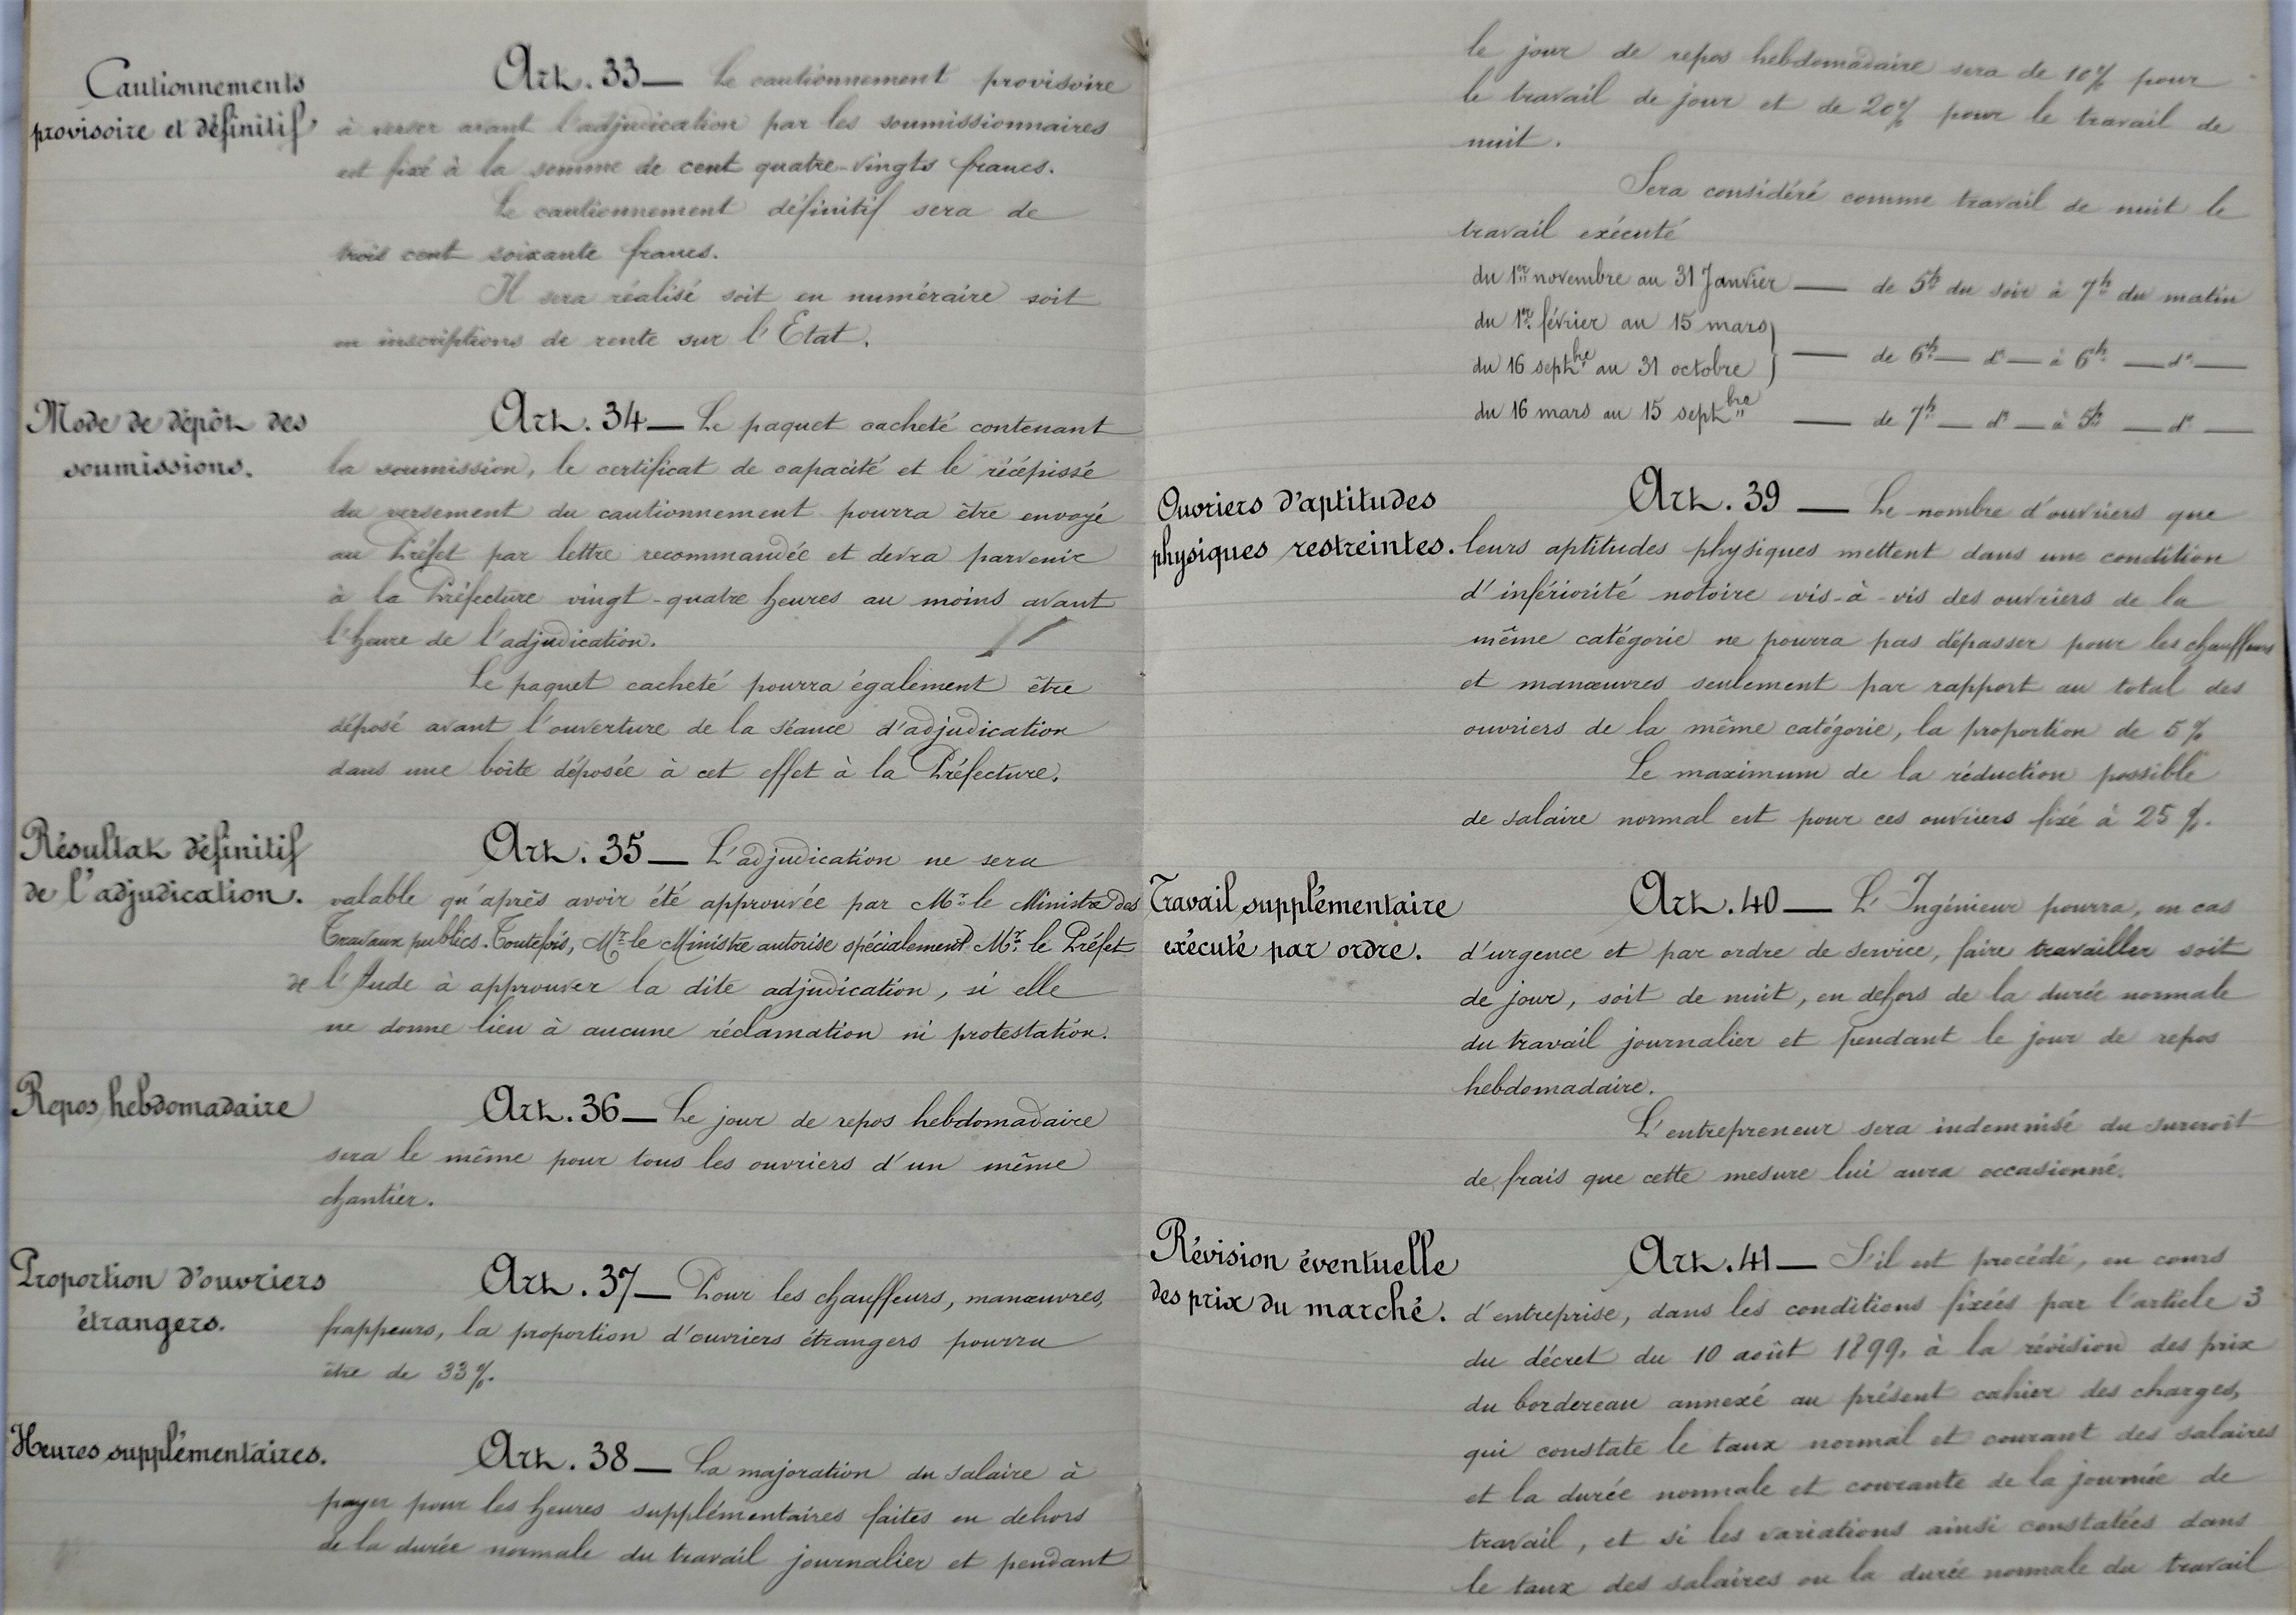 Cautionnements
provisoire et définitif
Art. 33 — Le cautionnement provisoire
à verser avant l'adjudication par les soumissionnaires
est fixé à la somme de cent quatre-vingts francs.
Le cautionnement définitif sera de
trois cent soixante francs.
Il sera réalisé soit en numéraire soit
en inscriptions de rente sur l'Etat.
Mode de dépôt des
soumissions.
Art. 34 — Le paquet cacheté contenant
la soumission, le certificat de capacité et le récépissé
du versement du cautionnement pourra être envoyé
au Préfet par lettre recommandée et devra parvenir
à la Préfecture vingt-quatre heures au moins avant
l'heure de l'adjudication.
Le paquet cacheté pourra également être
déposé avant l'ouverture de la séance d'adjudication
dans une boîte déposée à cet effet à la Préfecture.
Résultat définitif
de l'adjudication.
Art. 35 — L'adjudication ne sera
valable qu'après avoir été approuvée par Mr le Ministre des
Travaux publics. Toutefois, Mr le Ministre autorise spécialement Mr le Préfet
de l'Aude à approuver la dite adjudication, si elle
ne donne lieu à aucune réclamation ni protestation.
Repos hebdomadaire
Art. 36 — Le jour de repos hebdomadaire
sera le même pour tous les ouvriers d'un même
chantier.
Proportion d'ouvriers
étrangers.
Art. 37 — Pour les chauffeurs, manœuvres,
frappeurs, la proportion d'ouvriers étrangers pourra
être de 33%.
Heures supplémentaires.
Art. 38 — La majoration du salaire à
payer pour les heures supplémentaires faites en dehors
de la durée normale du travail journalier et pendant
le jour de repos hebdomadaire sera de 10% pour
le travail de jour et de 20% pour le travail de
nuit.
Sera considéré comme travail de nuit le
travail exécuté
du 1er novembre au 31 Janvier — de 5h du soir à 7h du matin
du 1er février au 15 mars
du 16 septbre au 31 octobre } — de 6h — do — à 6h — do —
du 16 mars au 15 septbre — de 7h — do — à 5h — do —
Ouvriers d'aptitudes
physiques restreintes.
Art. 39 — Le nombre d'ouvriers que
leurs aptitudes physiques mettent dans une condition
d'infériorité notoire vis-à-vis des ouvriers de la
même catégorie ne pourra pas dépasser pour les chauffeurs
et manœuvres seulement par rapport au total des
ouvriers de la même catégorie, la proportion de 5%
Le maximum de la réduction possible
de salaire normal est pour ces ouvriers fixé à 25%.
Travail supplémentaire
exécuté par ordre.
Art. 40 — L'Ingénieur pourra, en cas
d'urgence et par ordre de service, faire travailler soit
de jour, soit de nuit, en dehors de la durée normale
du travail journalier et pendant le jour de repos
hebdomadaire.
L'entrepreneur sera indemnisé du surcroît
de frais que cette mesure lui aura occasionné.
Révision éventuelle
des prix du marché.
Art. 41 — S'il est procédé, en cours
d'entreprise, dans les conditions fixées par l'article 3
du décret du 10 août 1899, à la révision des prix
du bordereau annexé au présent cahier des charges,
qui constate le taux normal et courant des salaires
et la durée normale et courante de la journée de
travail, et si les variations ainsi constatées dans
le taux des salaires ou la durée normale du travail